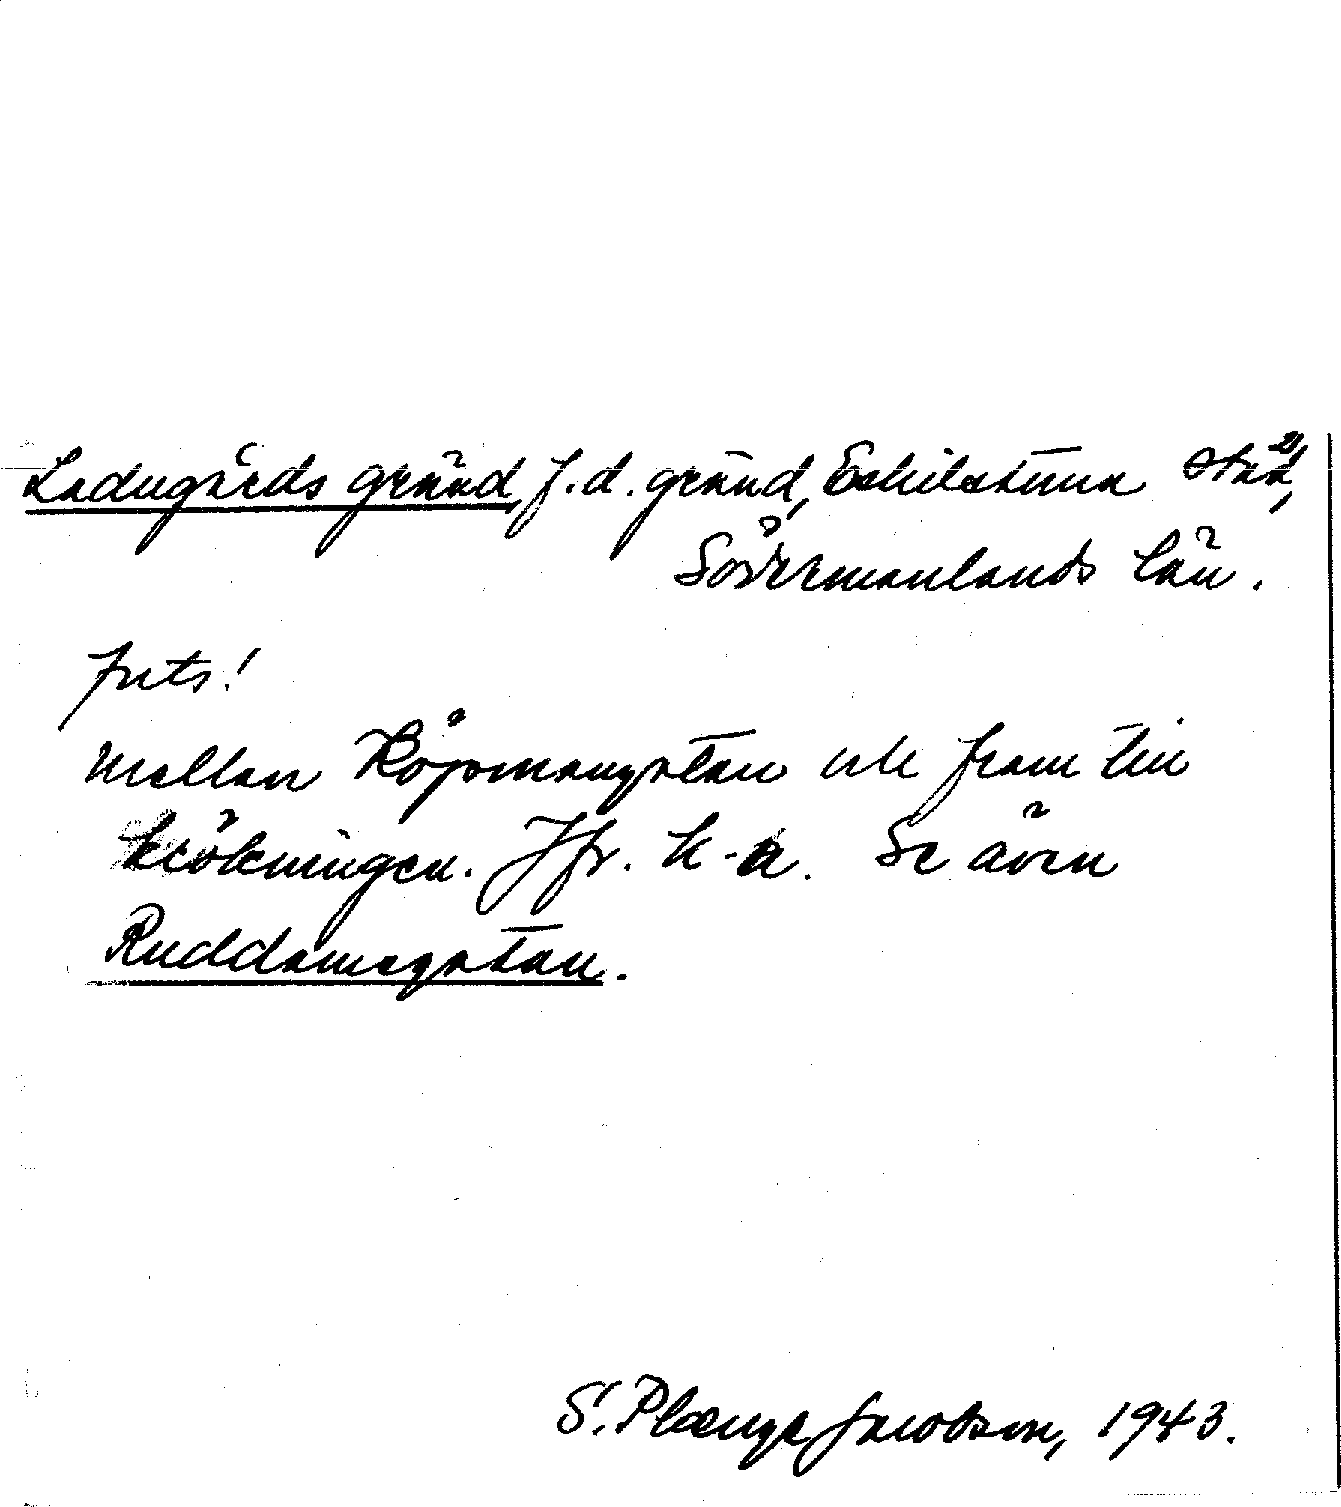 Ladugårds gränd, f.d. gränd, Eskilstuna stad,
Södermanlands län.
Juts!
Mellan Köpmangatan och fram till
krökningen. Jfr. K-a. Se även
Ruddammsgatan.
S. Plænge Jacobson, 1943.